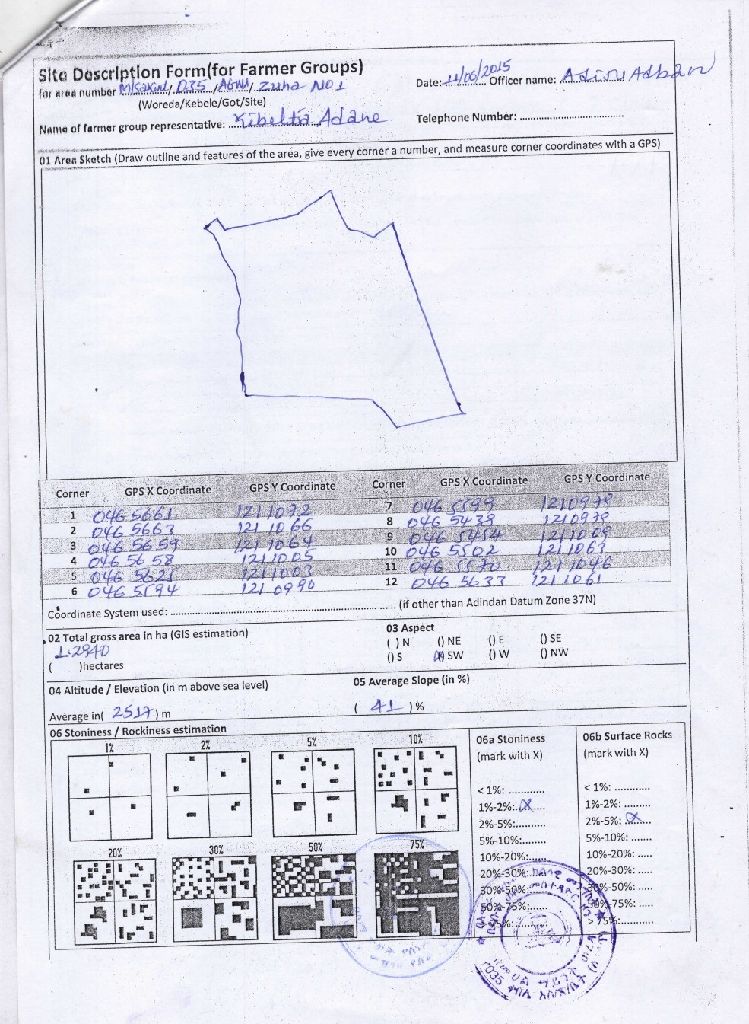 Site Description Form(for Farmer Groups)
for area number M/Sakial, 035, AGNU, Zuha NO1
Date: 21/06/2015 Officer name:
(Woreda/Kebele/Got/Site)
Name of farmer group representative: Kibelta Adane
Telephone Number:
01 Area Sketch (Draw outline and features of the area, give every corner a number, and measure corner coordinates with a GPS)
Corner GPS X Coordinate GPS Y Coordinate Corner GPS X Coordinate GPS Y Coordinate
1 0465661 1211072 7 0465599 1210978
2 0465663 1211066 8 0465439 1210979
3 0465659 1211064 9 0465454 1211069
4 0465658 1211005 10 0465502 1211063
5 0465621 1211003 11 0465570 1211046
6 0465594 1210990 12 0465633 1211061
Coordinate System used: (if other than Adindan Datum Zone 37N)
02 Total gross area in ha (GIS estimation)
1.2940
( )hectares
03 Aspect
( ) N () NE () E () SE
() S (X) SW () W () NW
04 Altitude / Elevation (in m above sea level)
Average in( 2517) m
05 Average Slope (in %)
( 41 ) %
06 Stoniness / Rockiness estimation
1% 2% 5% 10%
20% 30% 50% 75%
06a Stoniness
(mark with X)
< 1%:
1%-2%: X
2%-5%:
5%-10%:
10%-20%:
20%-30%:
30%-50%:
50%-75%:
06b Surface Rocks
(mark with X)
< 1%:
1%-2%:
2%-5%: X
5%-10%:
10%-20%:
20%-30%:
30%-50%:
50%-75%:
> 75%: